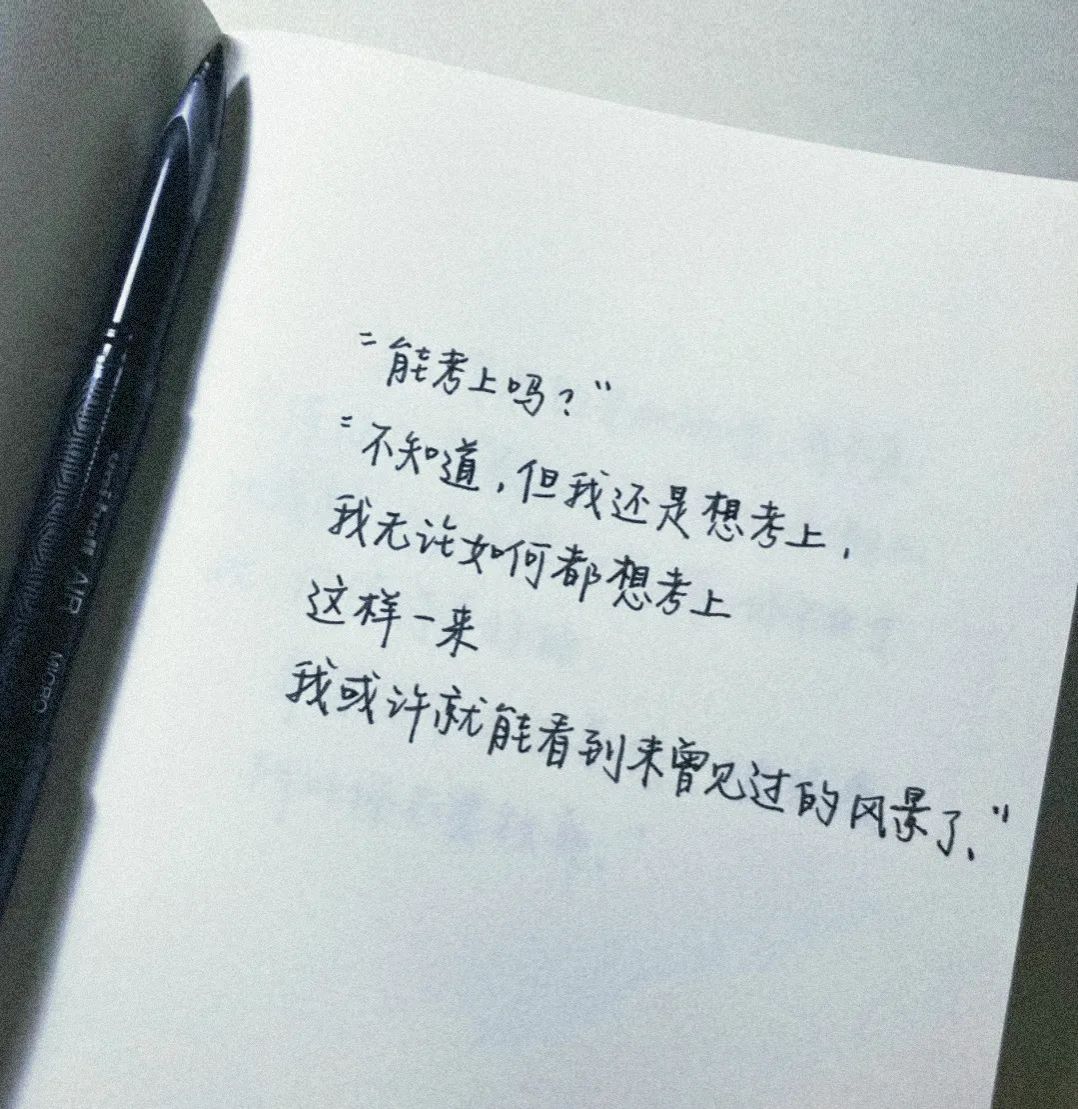 "能考上吗？"
"不知道，但我还是想考上，
我无论如何都想考上
这样一来
我或许就能看到未曾见过的风景了。"
AIR
MICRO